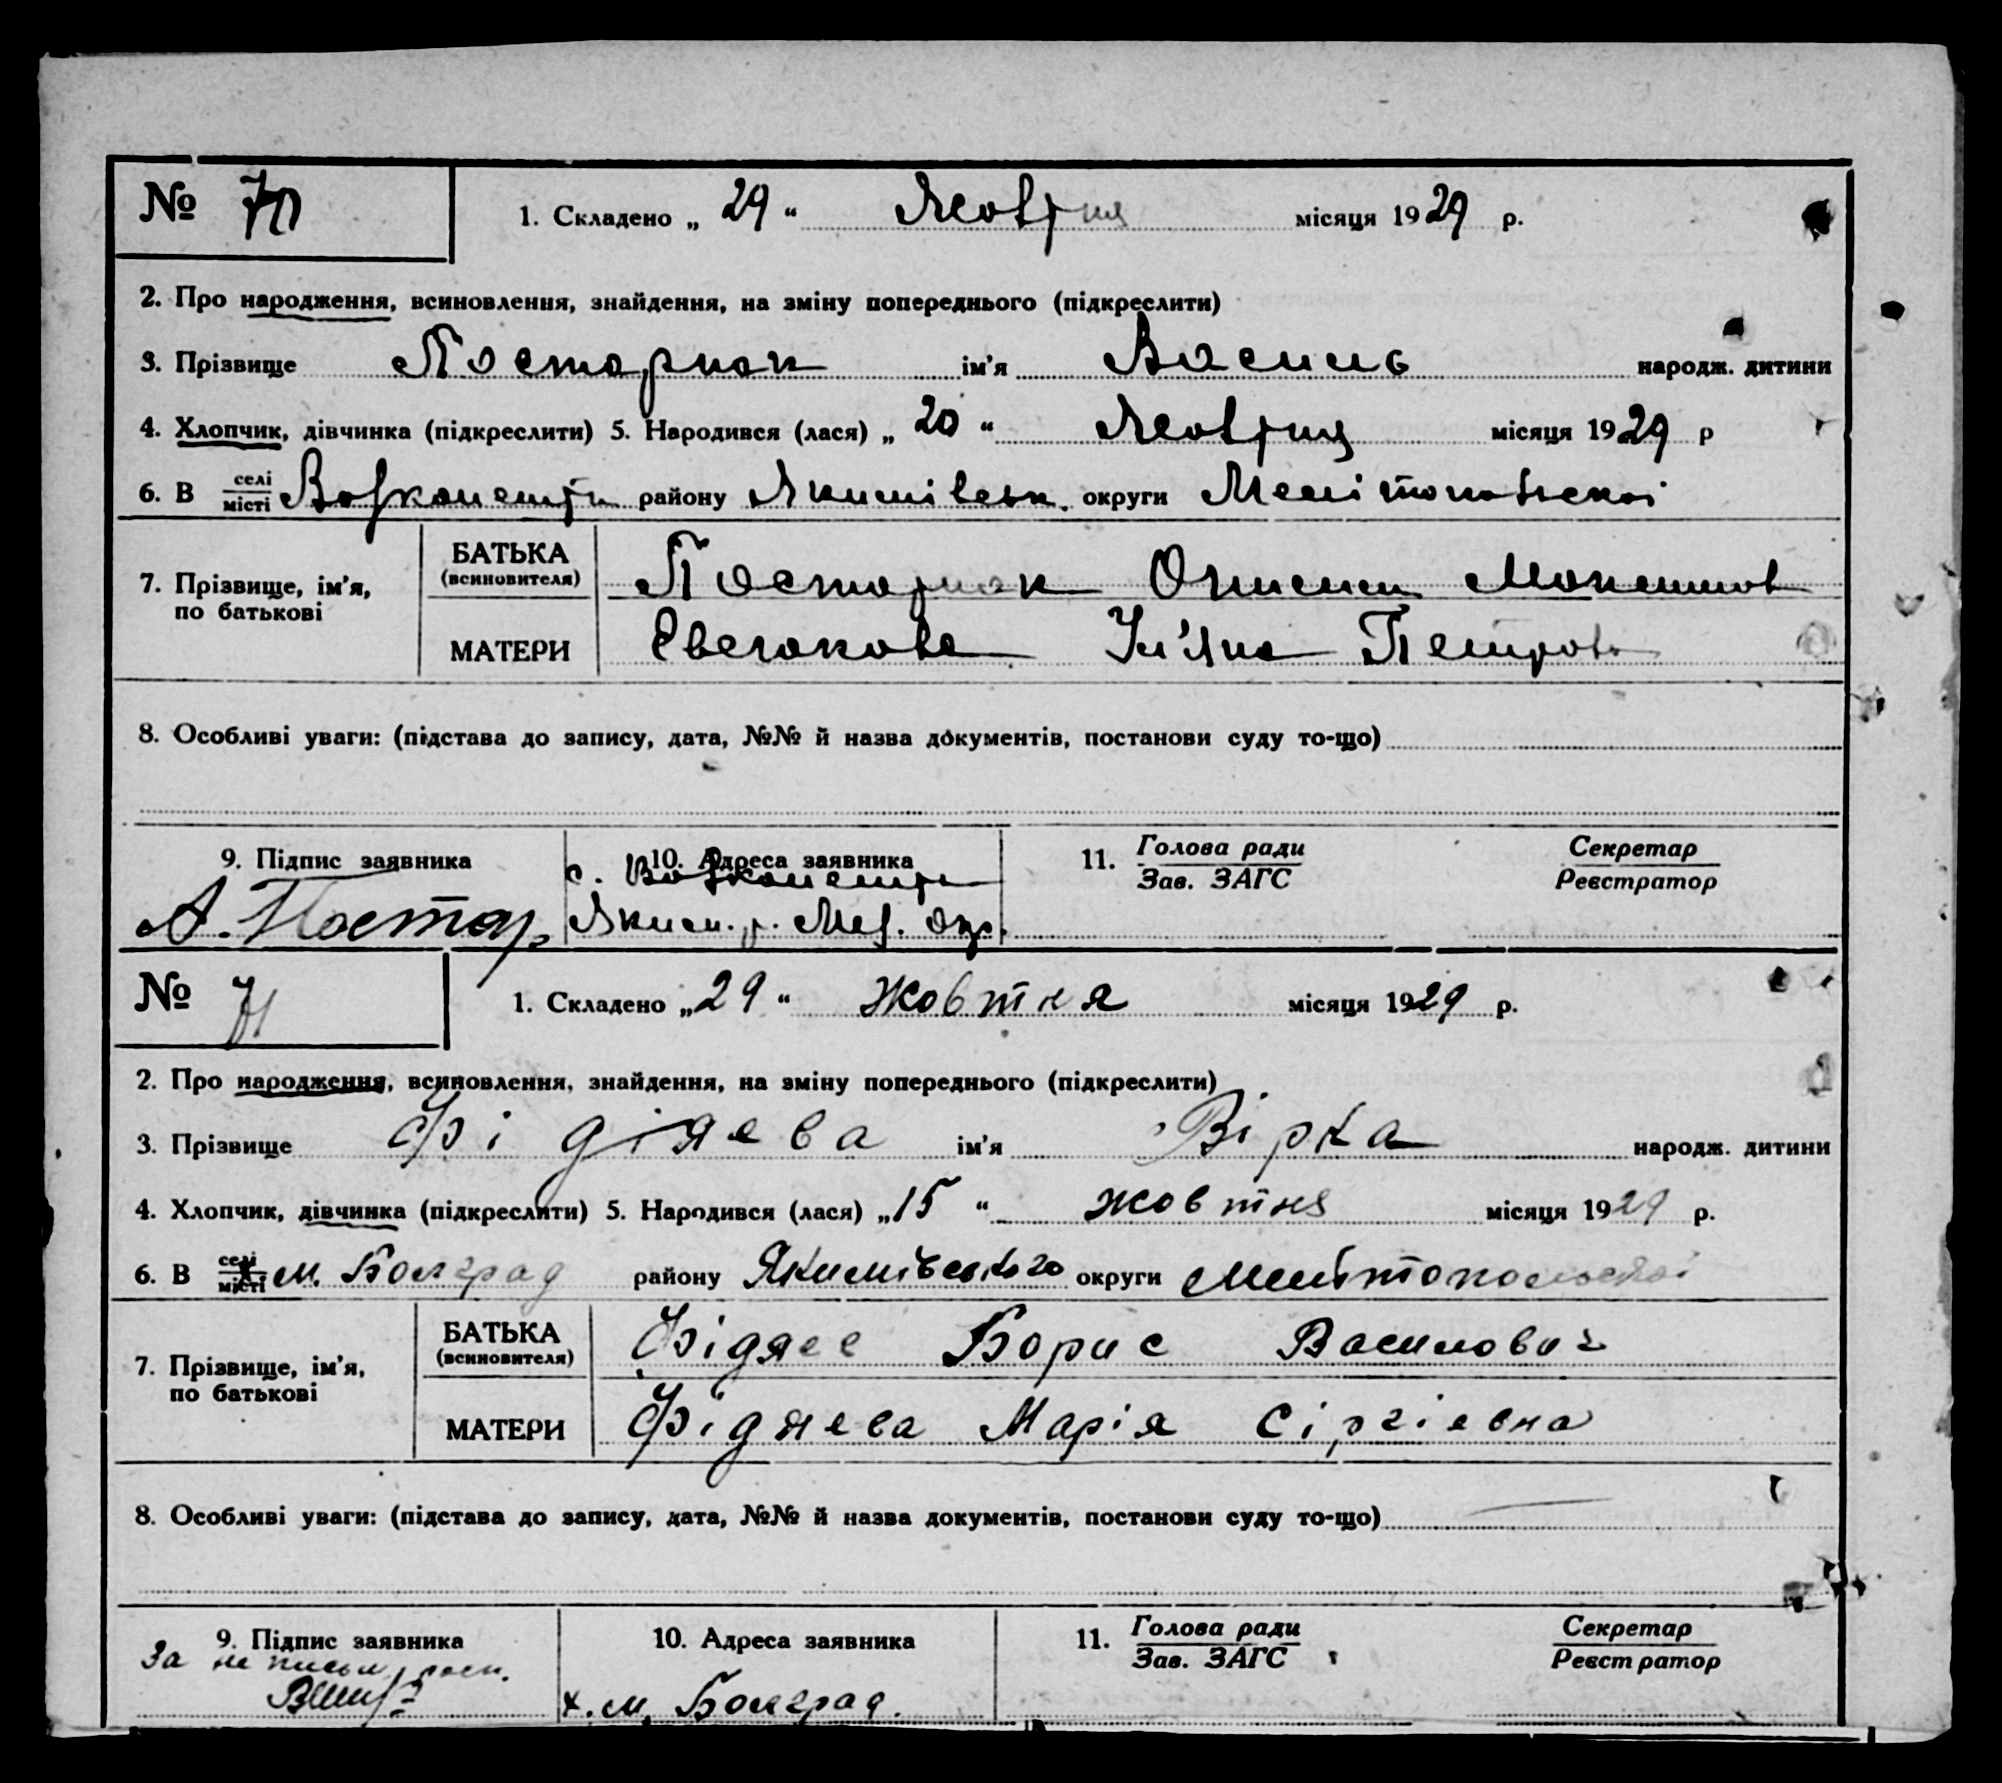 № 70 1. Складено „ 29 “ Жовтня місяця 1929 р.
2. Про народження, всиновлення, знайдення, на зміну попереднього (підкреслити)
3. Прізвище Постарнак ім’я Василь народж. дитини
4. Хлопчик, дівчинка (підкреслити) 5. Народився (лася) „ 20 “ Жовтня місяця 1929 р
6. В селі місті району Якимівськ. округи Мелітопольської
7. Прізвище, ім’я, по батькові
БАТЬКА (всиновителя) Постарнак
МАТЕРИ Петров
8. Особливі уваги: (підстава до запису, дата, №№ й назва документів, постанови суду то-що)
9. Підпис заявника 10. Адреса заявника 11. Голова ради Секретар
Зав. ЗАГС Реєстратор
А. Постар Яким. р. Мел. окр.
№ 71 1. Складено „ 29 “ Жовтня місяця 1929 р.
2. Про народження, всиновлення, знайдення, на зміну попереднього (підкреслити)
3. Прізвище Фідяева ім’я Вірка народж. дитини
4. Хлопчик, дівчинка (підкреслити) 5. Народився (лася) „ 15 “ жовтня місяця 1929 р.
6. В селі місті х. м. Болград району Якимівського округи Мелітопольської
7. Прізвище, ім’я, по батькові
БАТЬКА (всиновителя) Фідяев Борис Василович
МАТЕРИ Фідяева Марія Сіргіевна
8. Особливі уваги: (підстава до запису, дата, №№ й назва документів, постанови суду то-що)
9. Підпис заявника 10. Адреса заявника 11. Голова ради Секретар
Зав. ЗАГС Реєстратор
За не письм. росп.
х. м. Болград.